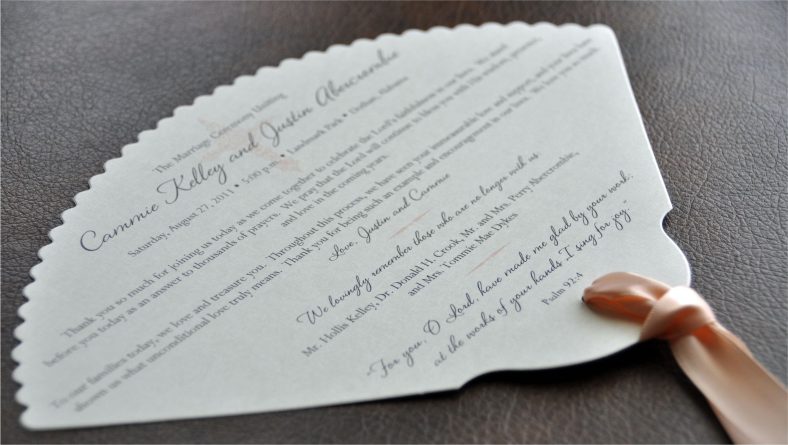 The Marriage Ceremony Uniting
Cammie Kelley and Justin Abercrombie
Saturday, August 27, 2011 • 5:00 p.m. • Landmark Park • Dothan, Alabama
Thank you so much for joining us today as we come together to celebrate the Lord's faithfulness in our lives. We stand
before you today as an answer to thousands of prayers. We pray that the Lord will continue to bless you with his wisdom, presence,
and love in the coming years.
To our families today, we love and treasure you. Throughout this process, we have seen your immeasurable love and support, and your lives have
shown us what unconditional love truly means. Thank you for being such an example and encouragement in our lives. We love you so much
Love, Justin and Cammie
We lovingly remember those who are no longer with us
Mr. Hollis Kelley, Dr. Donald H. Crook, Mr. and Mrs. Perry Abercrombie,
and Mrs. Tommie Mae Dykes
"For you, O Lord, have made me glad by your work;
at the works of your hands I sing for joy"
Psalm 92:4